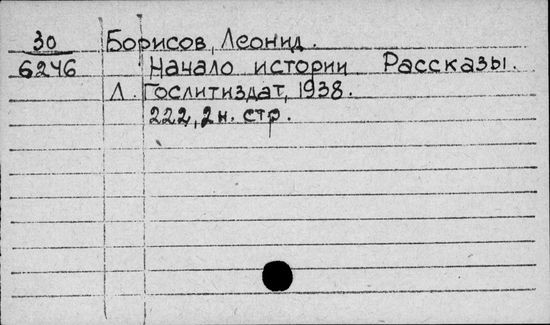 30 Борисов, Леонид.
6246 Начало истории Рассказы.
Л. Гослитиздат, 1938.
222, 2 н. стр.